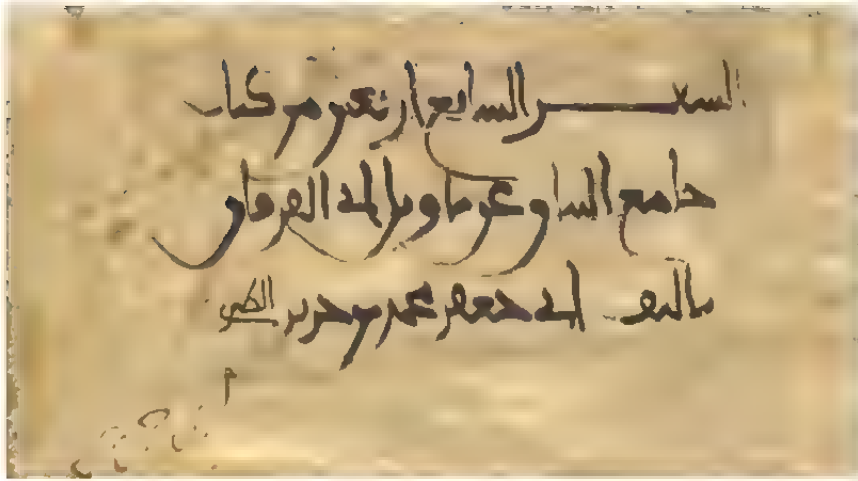 السفر السابع اربعين من كتاب
جامع البيان عن تاويل اي الفرقان
تاليف ابي جعفر محمد بن جرير الطبري
م